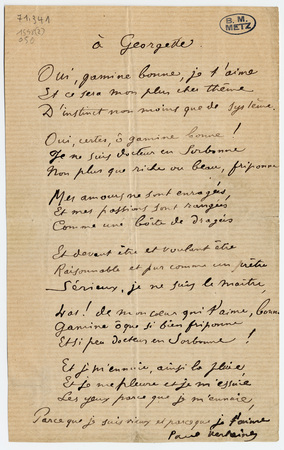 71.941
B. M.
METZ
à Georgette.
Oui, gamine bonne, je t'aime
Et ce sera mon plus cher thème
D'instinct non moins que de système.
Oui, certes, ô gamine bonne !
Je ne suis docteur en Sorbonne
Non plus que riche ou beau, friponne
Mes amours ne sont enragés
Et mes passions sont rangées
Comme une boîte de dragées
Et devant être et voulant être
Raisonnable et pur comme un prêtre
Sérieux, je ne suis le maître,
Las ! de mon cœur qui t'aime, bonne
Gamine ô que si bien friponne
Et si peu Docteur en Sorbonne !
Et je m'ennuie, ainsi la pluie
Et je me pleure et je m'essuie
Les yeux parce que je m'ennuie,
Parce que je suis vieux et parce que je t'aime
Paul Verlaine